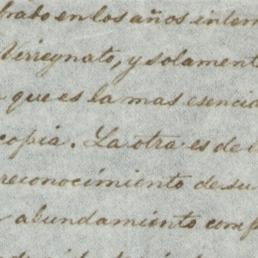 trabo en los años interm
Virreynato, y solament
que es la mas esencia
copia. La otra es de
reconocimiento de su
abundamiento comp